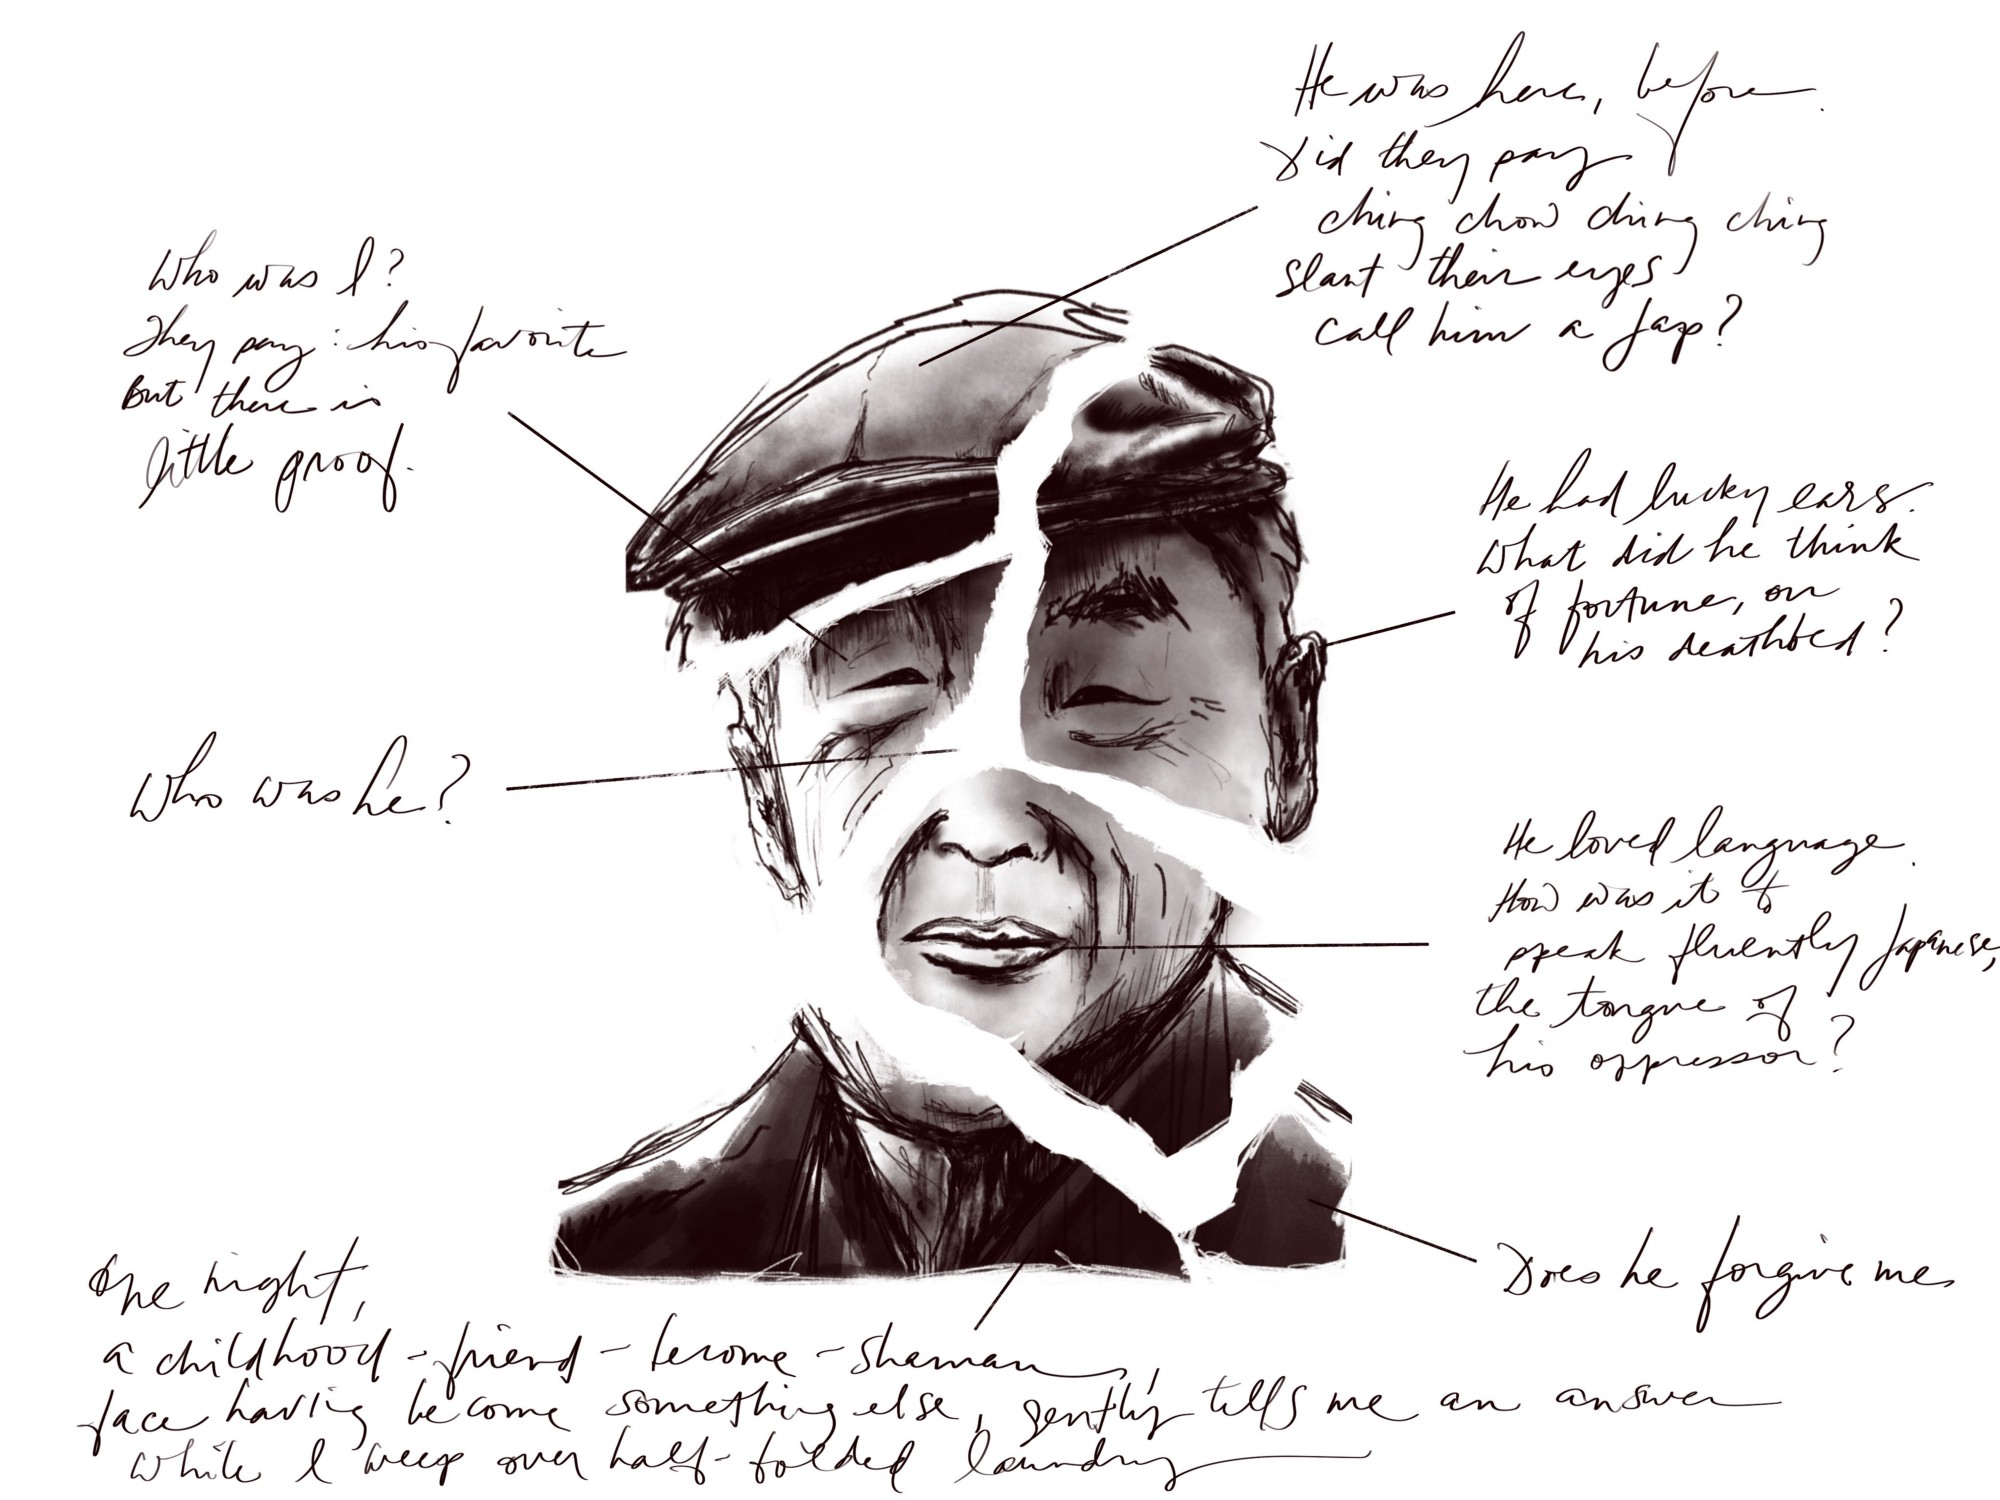 He was here, before.
Did they say
ching chow ching ching
slant their eyes
call him a Jap?
Who was I?
They say: his favorite
But there is
little proof.
He had lucky ears.
What did he think
of fortune, on
his deathbed?
Who was he?
He loved language.
How was it to
speak fluently Japanese,
the tongue of
his oppressor?
Does he forgive me
One night,
a childhood-friend-become-shaman,
face having become something else, gently tells me an answer
while I weep over half-folded laundry